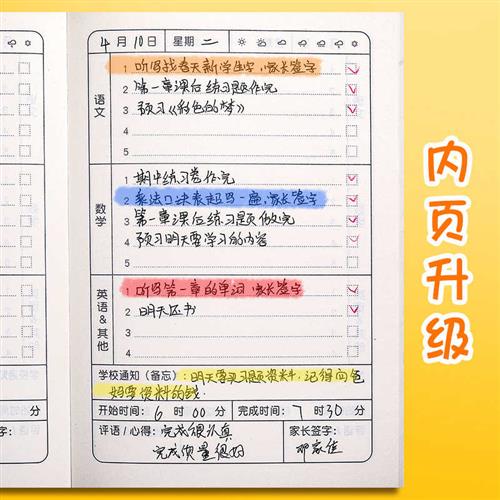 4月10日 星期二
语文
1 听写找春天新学生字,家长签字
2 第一章课后练习题作完
3 预习《彩色的梦》
4
5
数学
1 期中练习卷作完
2 乘法口诀表起写一遍,家长签字
3 第一章课后练习题做完
4 预习明天要学习的内容
5
英语&其他
1 听写第一章的单词,家长签字
2 明天还书
3
学校通知(备忘):明天要买习题资料,记得向爸
妈要资料的钱
开始时间:6时00分 完成时间:7时30分
评语/心得:完成很认真
完成质量很好
家长签字:
邓家佳
内页升级